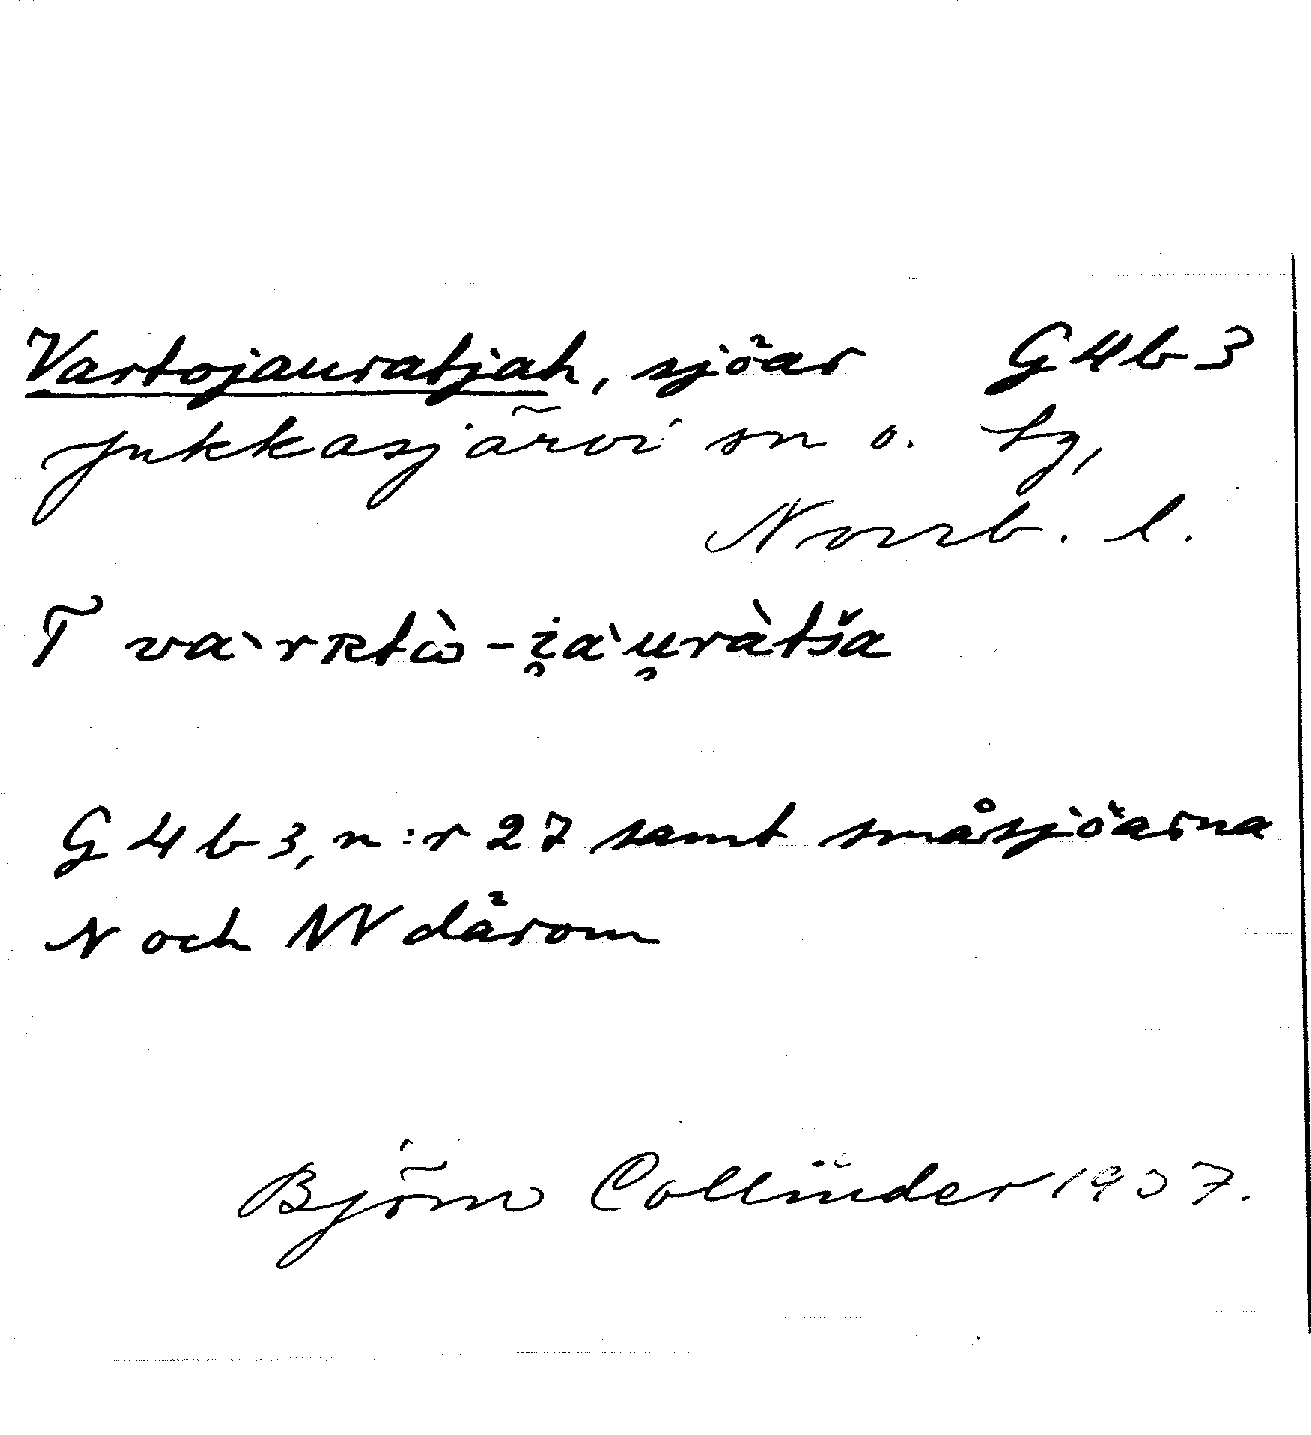 Vartojauratjah, sjöar G4b3
Jukkasjärvi sn o. tg,
Norrb. l.
T va`rʀtὼ-i̯a`u̯ràtša
G4b3, n:r 27 samt småsjöarna
N och NV därom
Björn Collinder 1937.